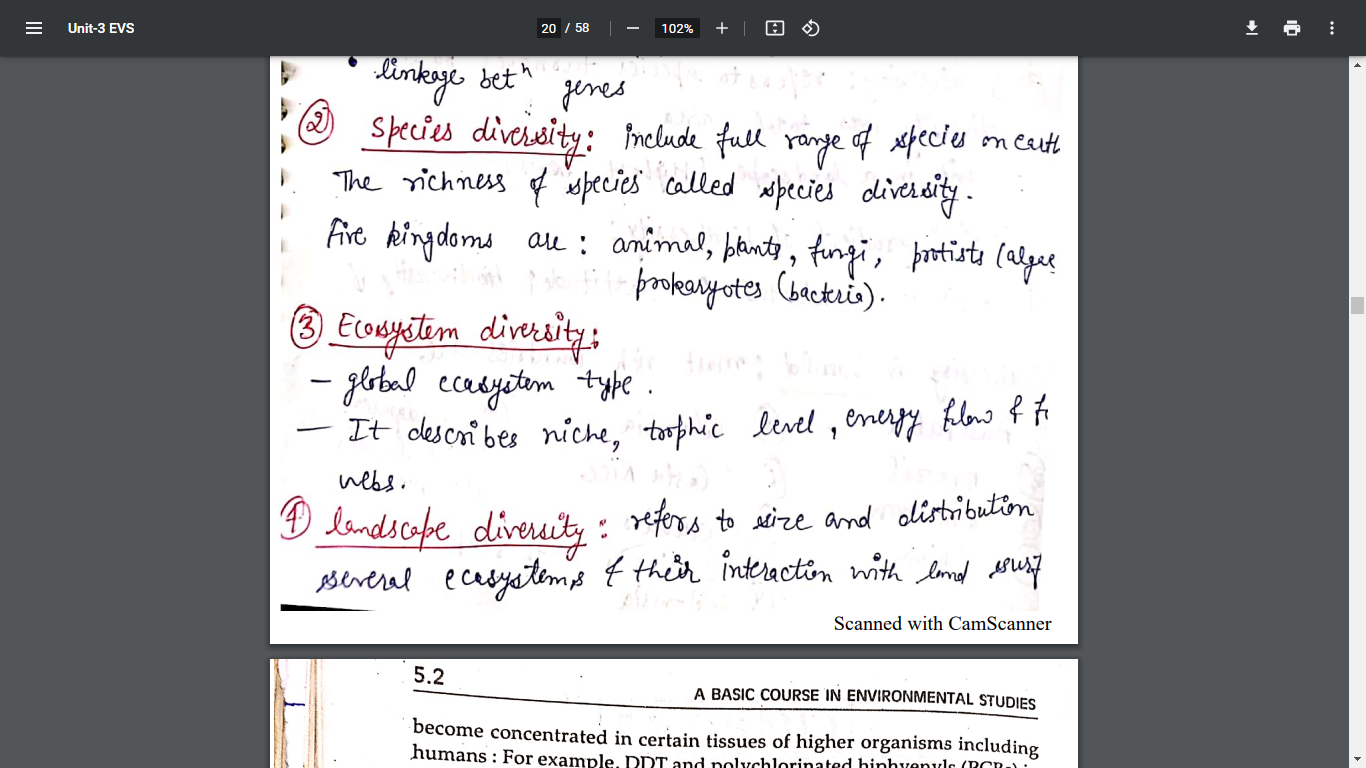 Unit-3 EVS
20 / 58
102%
• linkage betⁿ genes
② Species diversity: include full range of species on earth
The richness of species called species diversity.
Five kingdoms are : animal, plants, fungi, protists (algae
prokaryotes (bacteria).
③ Ecosystem diversity:
– global ecosystem type.
– It describes niche, trophic level, energy flow &
webs.
④ landscape diversity : refers to size and distribution
several ecosystems & their interaction with land surf
Scanned with CamScanner
5.2
A BASIC COURSE IN ENVIRONMENTAL STUDIES
become concentrated in certain tissues of higher organisms including
humans : For example, DDT and polychlorinated biphyenyls (PCBs)